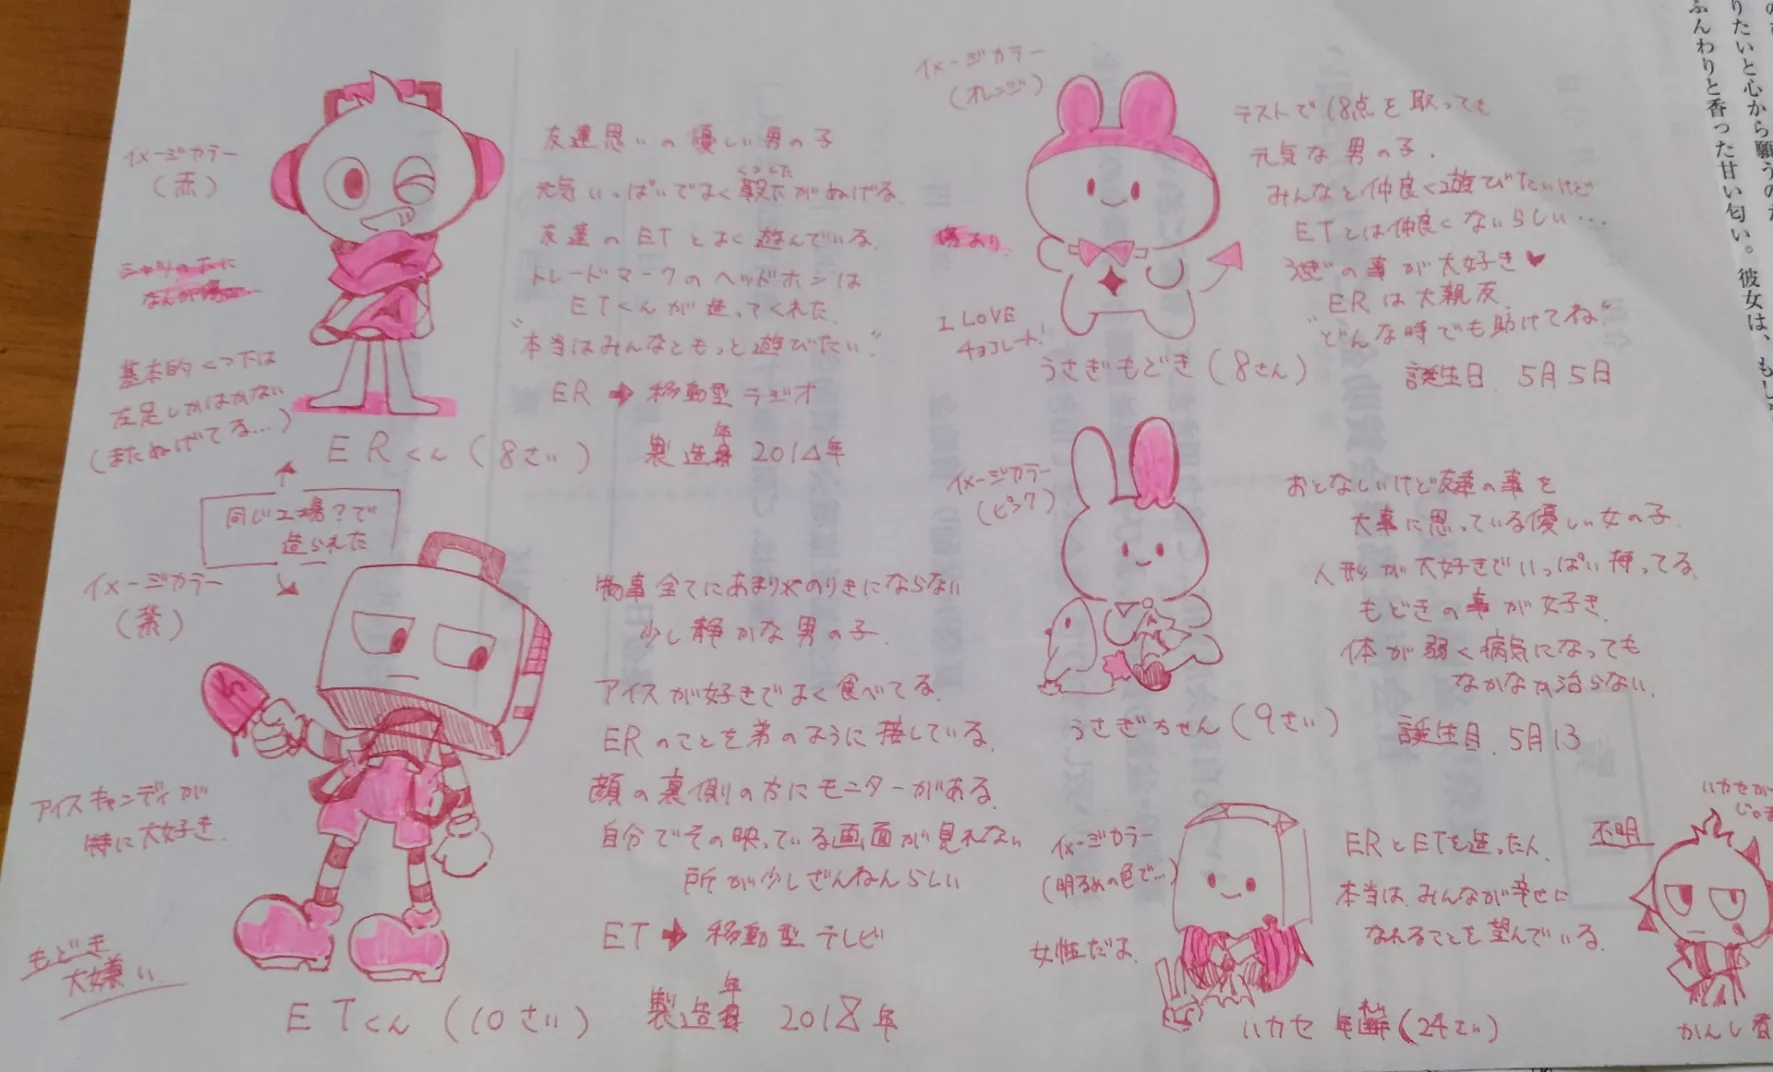 イメージカラー
(赤)
友達思いの優しい男の子
元気いっぱいでよく靴下がぬげる.
くつした
友達のETとよく遊んでいる.
トレードマークのヘッドホンは
ETくんが造ってくれた.
"本当はみんなともっと遊びたい."
ER➡移動型ラジオ
基本的くつ下は
左足しかはかない
(またぬげてる…)
ERくん(8さい)
製造年 2014年
同じ工場?で
造られた
イメージカラー
(紫)
物事全てにあまりやのりきにならない
少し静かな男の子.
アイスが好きでよく食べてる.
ERのことを弟のように接している.
顔の裏側の方にモニターがある.
自分でその映っている画面が見れない
所が少しざんねんらしい
ET➡移動型テレビ
アイスキャンディが
特に大好き.
もどき
大嫌い.
ETくん(10さい)
製造年 2018年
イメージカラー
(オレンジ)
テストで18点を取っても
元気な男の子.
みんなと仲良く遊びたいけど
ETとは仲良くないらしい…
うさぎの事が大好き♥
ERは大親友.
"どんな時でも助けてね"
I LOVE
チョコレート!
うさぎもどき(8さい)
誕生日. 5月5日
イメージカラー
(ピンク)
おとなしいけど友達の事を
大事に思っている優しい女の子.
人形が大好きでいっぱい持ってる.
もどきの事が好き.
体が弱く病気になっても
なかなか治らない.
うさぎちゃん(9さい)
誕生日. 5月13
イメージカラー
(明るめの色で…)
女性だよ.
ERとETを造った人.
本当は、みんなが幸せに
なれることを望んでいる.
ハカセ 年齢(24さい)
ハカセが
不明
かんし
りたいと心から願うのか
ふんわりと香った甘い匂い。彼女は、もし